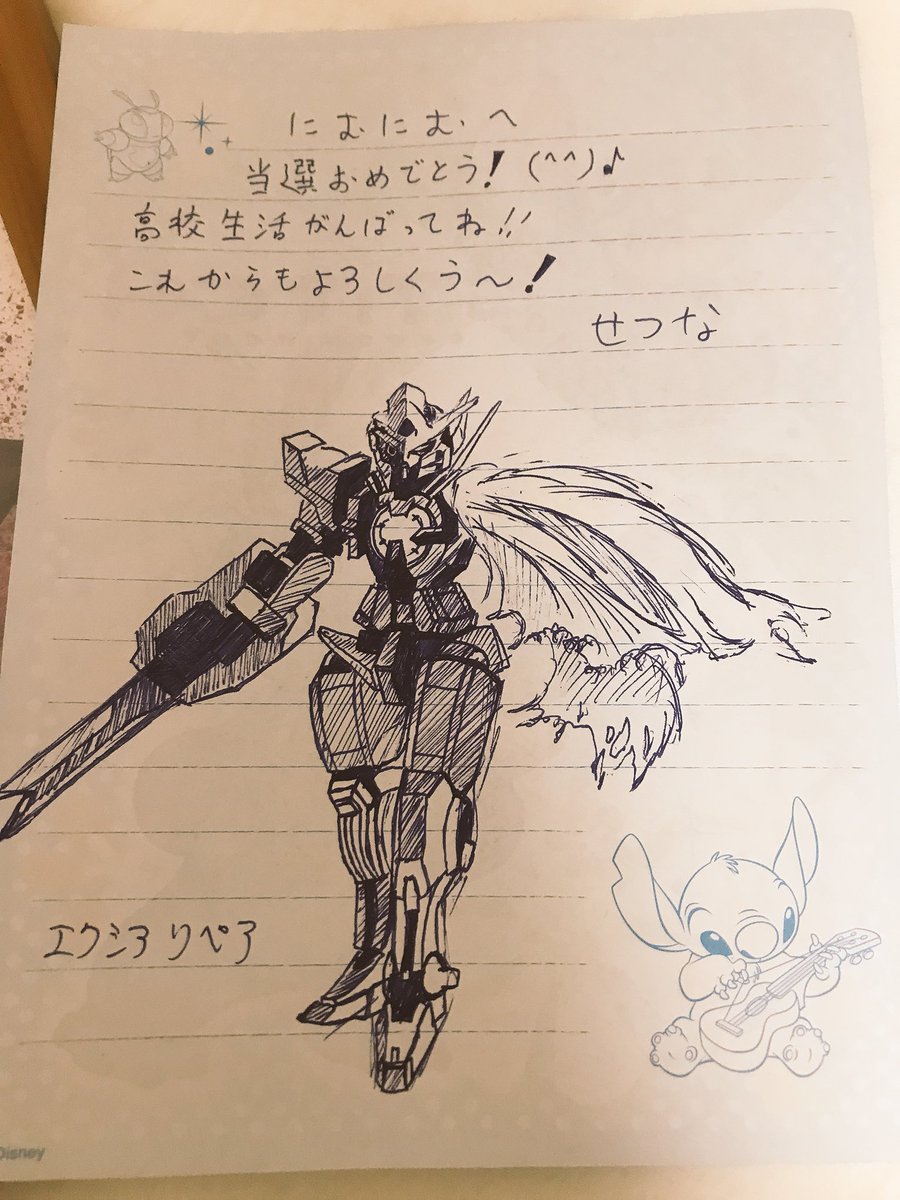 にむにむへ
当選おめでとう！(^^)♪
高校生活がんばってね!!
これからもよろしくう〜！
せつな
エクシア リペア
Disney